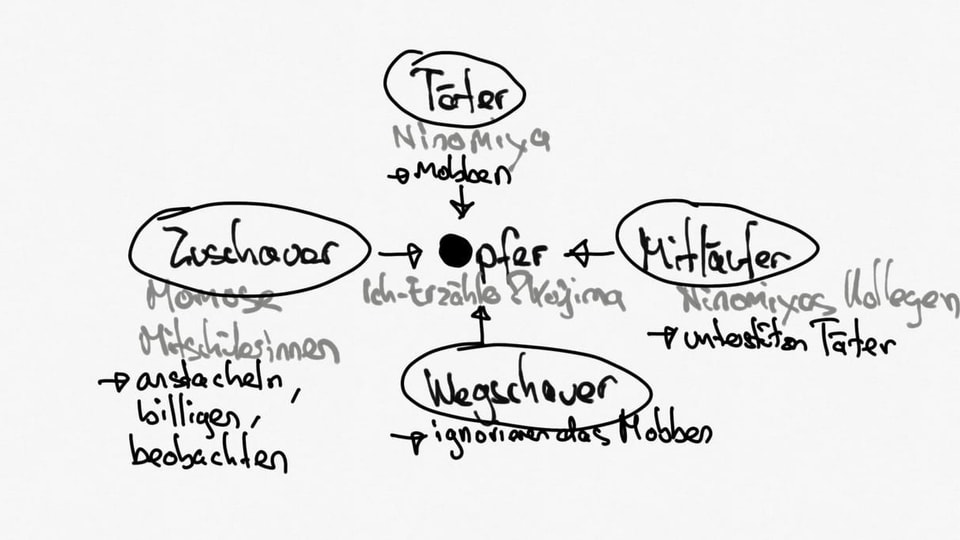 Täter
Ninomiya
→ Mobben
Zuschauer
Momose
Mitschülerinnen
→ anstacheln,
billigen,
beobachten
Opfer
Ich-Erzähler & Kojima
Mitläufer
Ninomiyas Kollegen
→ unterstützen Täter
Wegschauer
→ ignorieren das Mobben